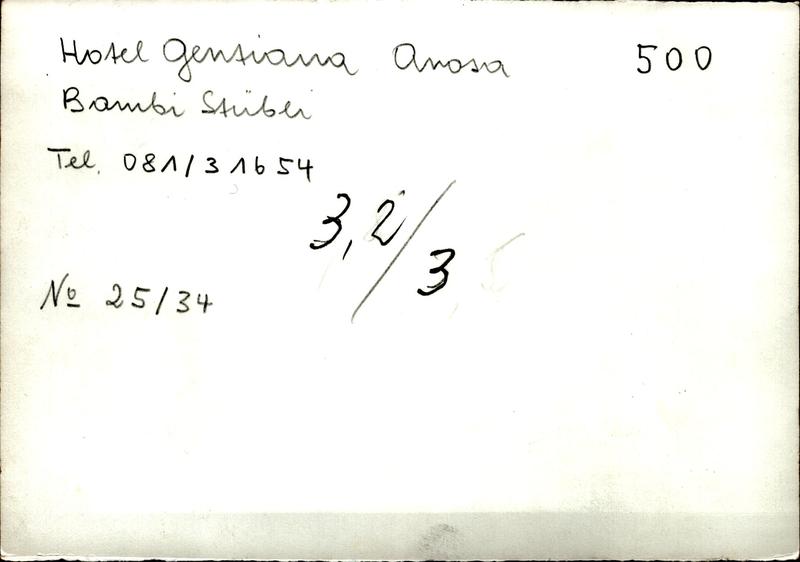 Hotel Gentiana Arosa 500
Bambi Stübli
Tel. 081/31654
3,2/3
№ 25/34